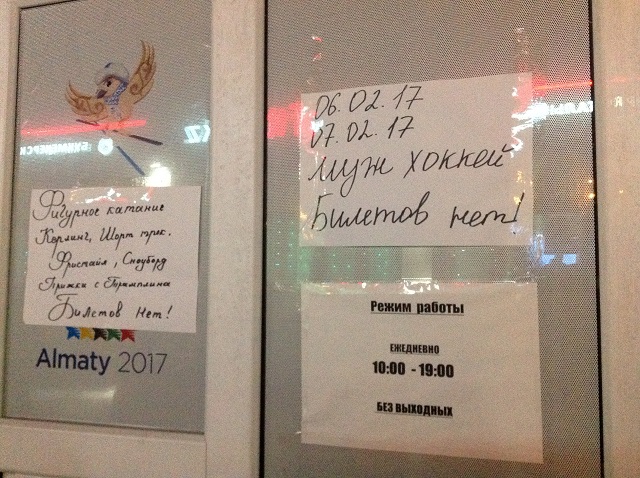 Фигурное катание
Керлинг, Шорт трек.
Фристайл, Сноуборд
Прыжки с Трамплина
Билетов Нет!
Almaty 2017
06.02.17
07.02.17
муж хоккей
Билетов нет!
Режим работы
ЕЖЕДНЕВНО
10:00 - 19:00
БЕЗ ВЫХОДНЫХ